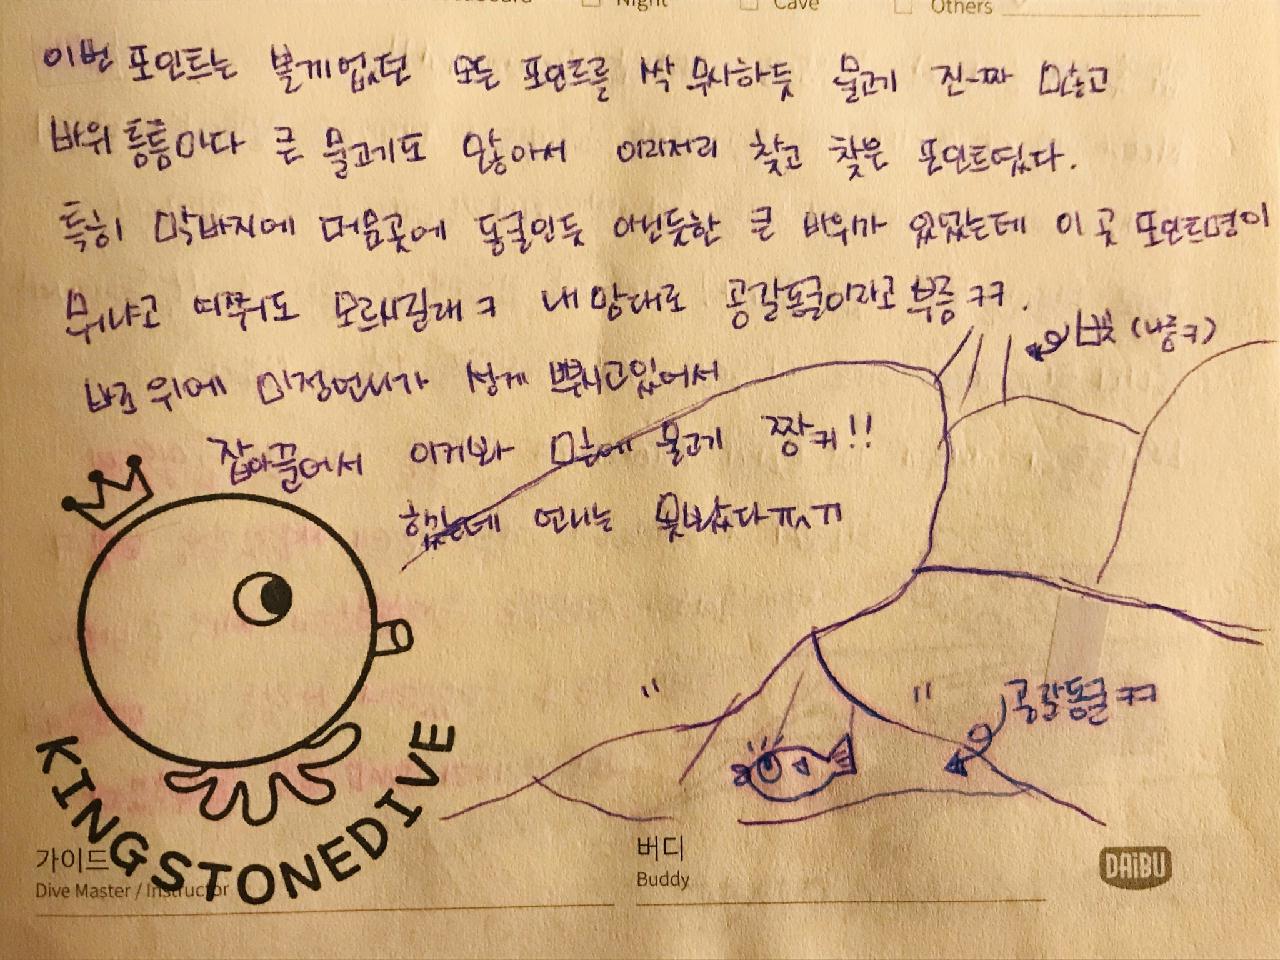 Night Cave Others
이번 포인트는 볼게없던 모든 포인트를 싹 무시하듯 물고기 진-짜 많고
바위 틈틈마다 큰 물고기도 많아서 이리저리 찾고 찾은 포인트였다.
특히 막바지에 머음곳에 동굴인듯 아닌듯한 큰 바위가 있었는데 이 곳 포인트명이
뭐냐고 여쭤도 모르시길래 ㅋ 내 맘대로 공갈동굴이라고 부름 ㅋㅋ.
빛 (나름ㅋ)
바로 위에 미정언니가 성게 뿌시고있어서
잡아끌어서 이거봐 밑에 물고기 짱커!!
했는데 언니는 못봤다ㅠㅠ
공갈동굴 ㅋㅋ
KINGSTONEDIVE
가이드
Dive Master / Instructor
버디
Buddy
DAiBU